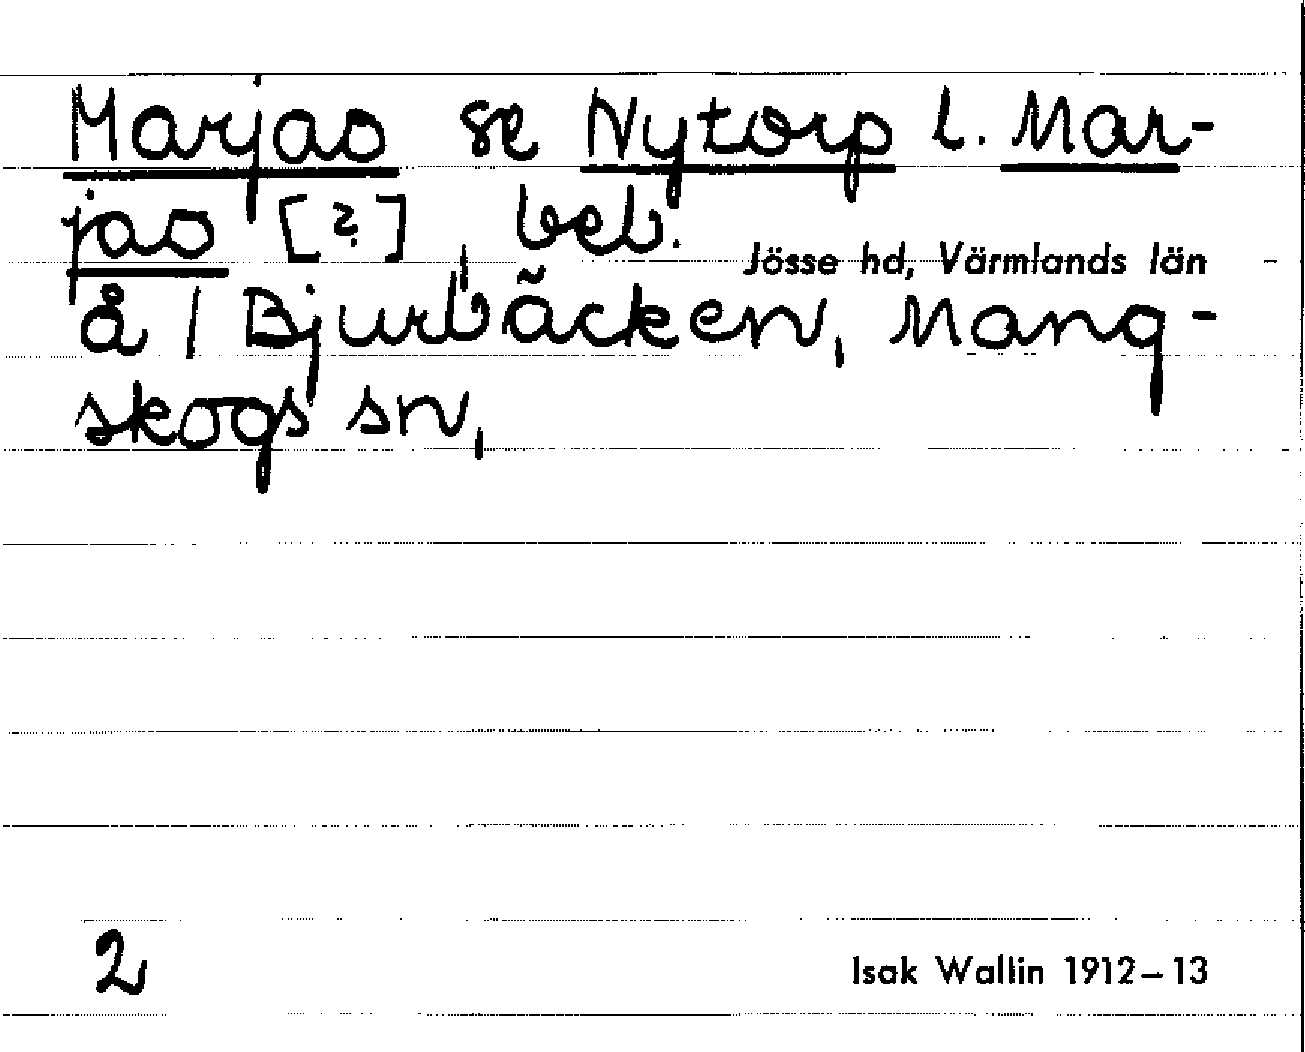 Marjao se Nytorp l. Mar-
jao [?], beb.
Jösse hd, Värmlands län
å / Bjurbäcken, Mang-
skogs sn,
2
Isak Wallin 1912–13